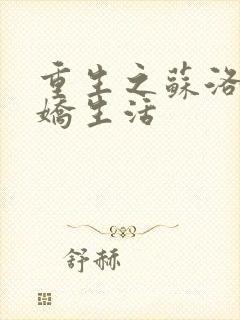 重生之蘇洛
嬌生活
舒赫